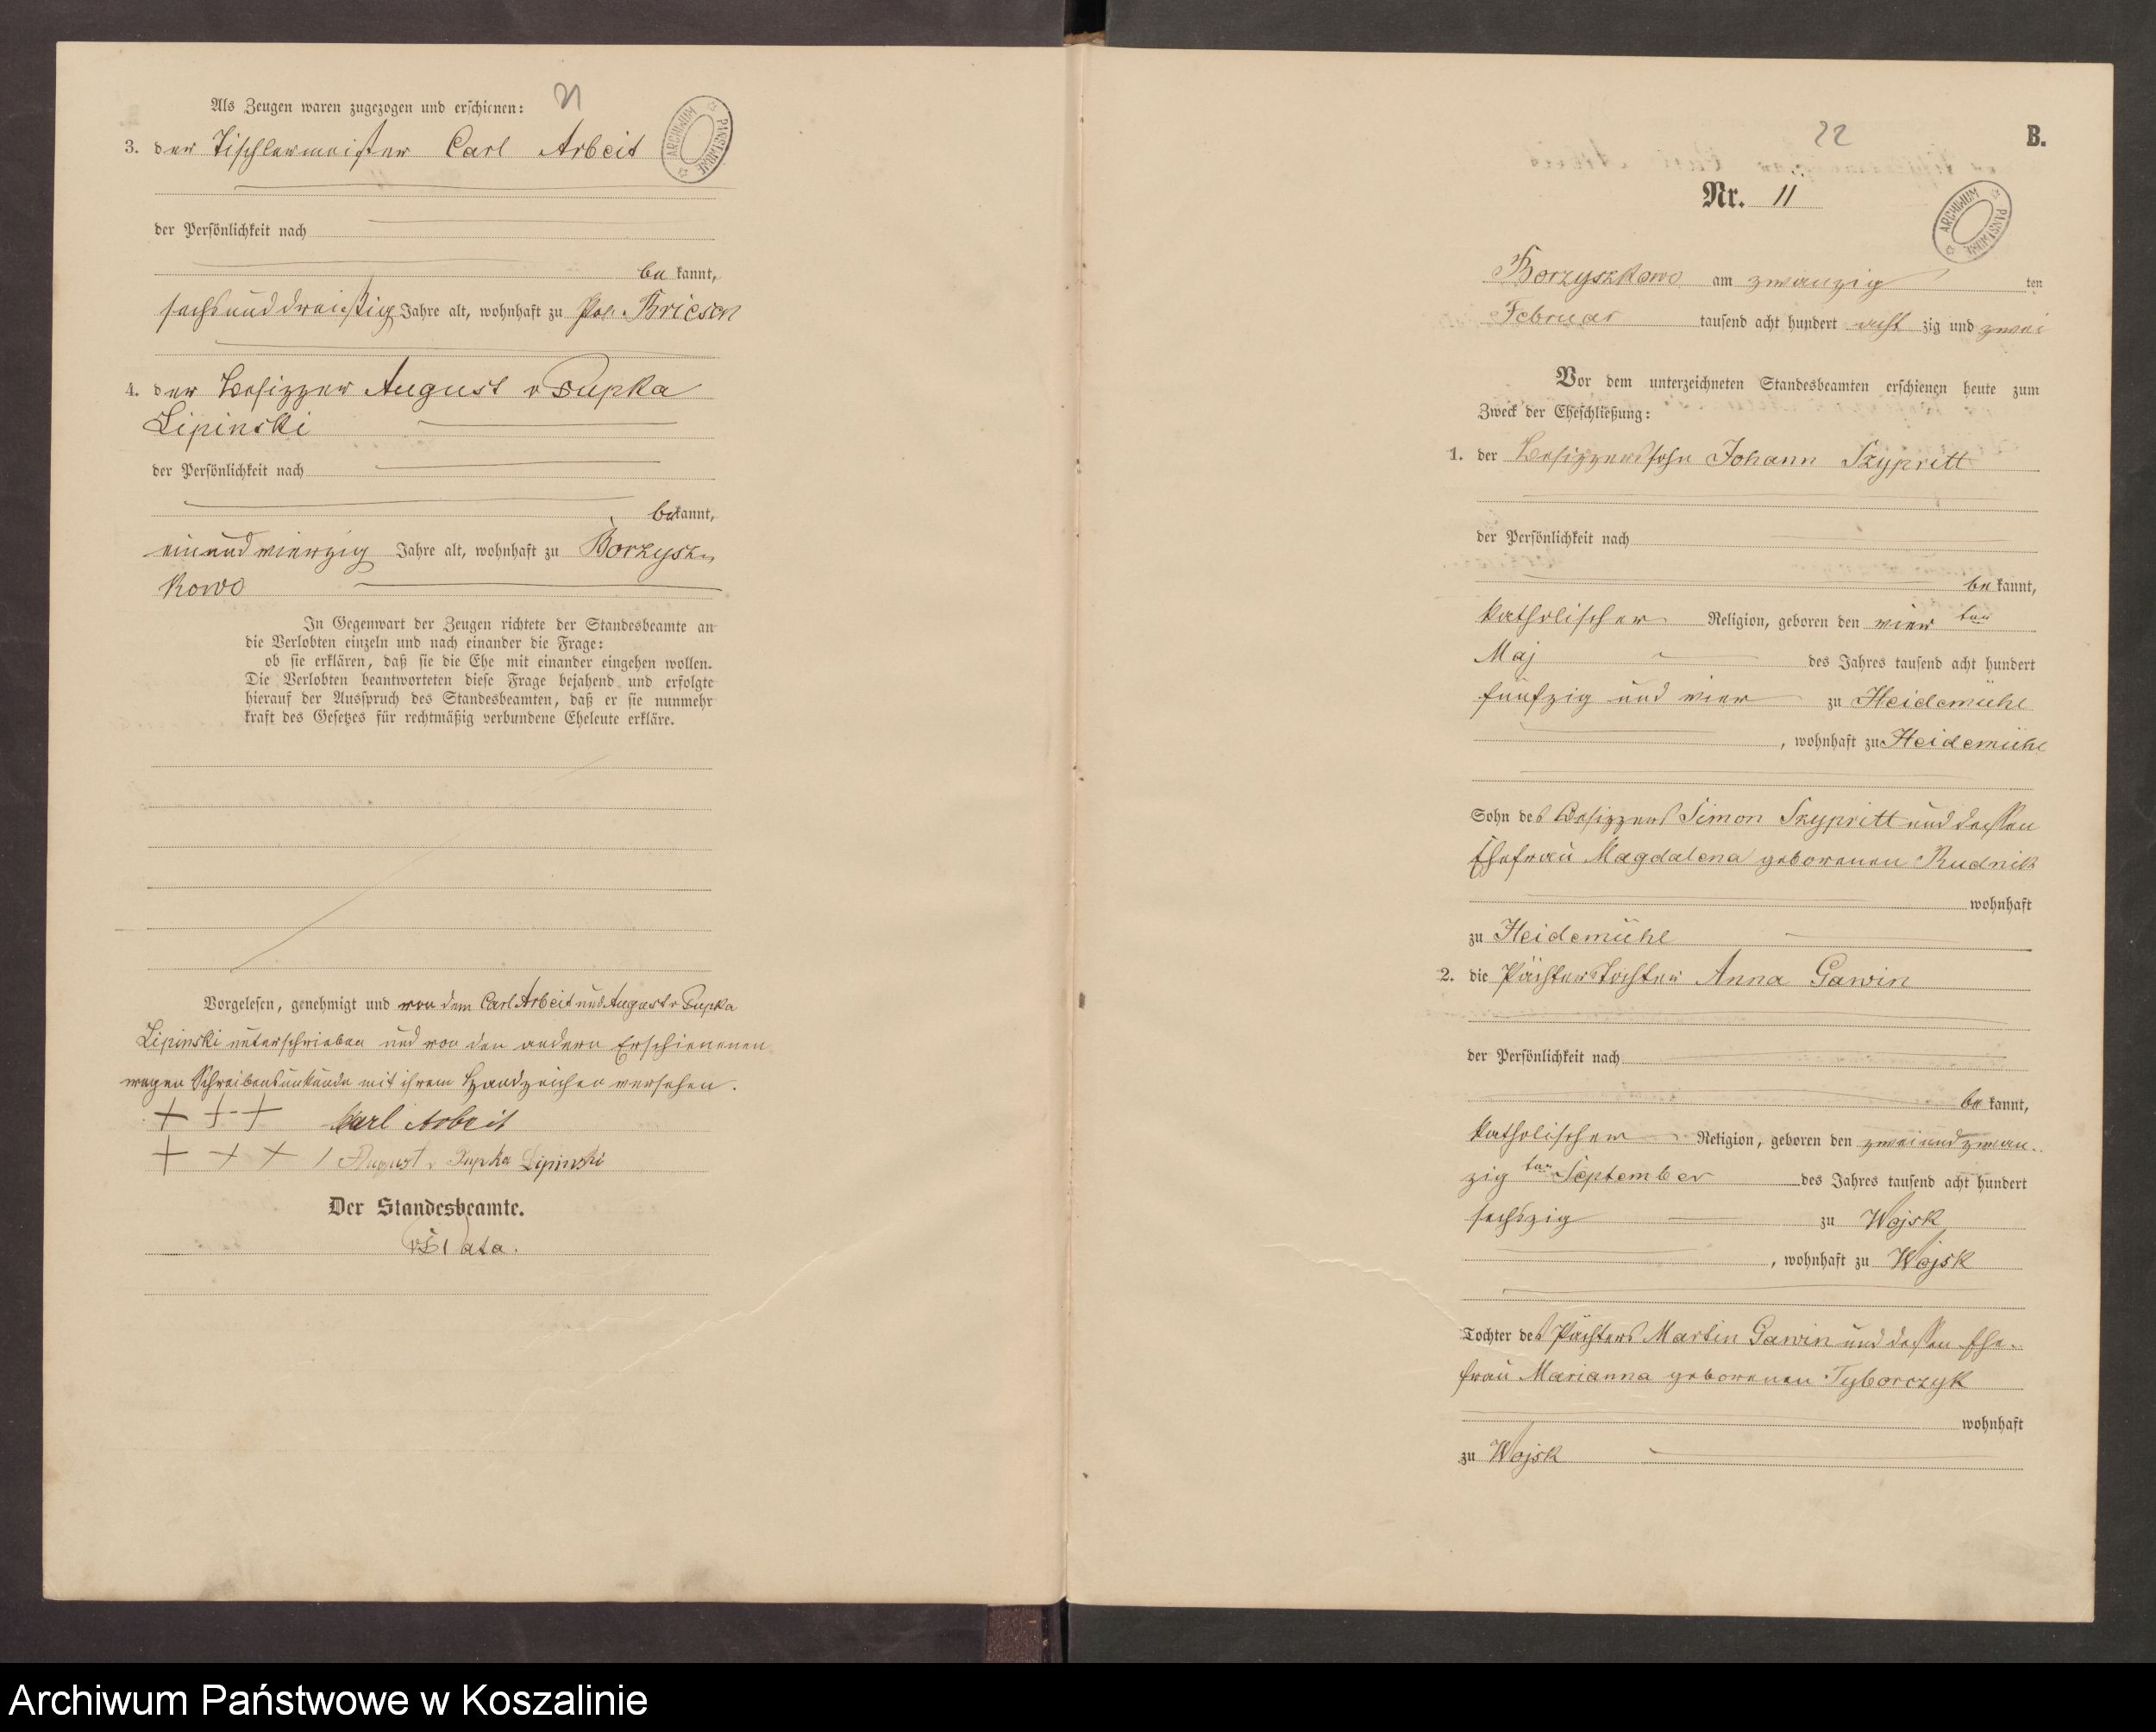 21
Als Zeugen waren zugezogen und erschienen:
3. der Tischlermeister Carl Arbeit
ARCHIWUM PAŃSTWOWE
der Persönlichkeit nach
be kannt,
sechsunddreißig Jahre alt, wohnhaft zu Poln. Briesen
4. der Besitzer August v Pupka
Lipinski
der Persönlichkeit nach
be kannt,
einundvierzig Jahre alt, wohnhaft zu Borzysz-
kowo
In Gegenwart der Zeugen richtete der Standesbeamte an
die Verlobten einzeln und nach einander die Frage:
ob sie erklären, daß sie die Ehe mit einander eingehen wollen.
Die Verlobten beantworteten diese Frage bejahend und erfolgte
hierauf der Ausspruch des Standesbeamten, daß er sie nunmehr
kraft des Gesetzes für rechtmäßig verbundene Eheleute erkläre.
Vorgelesen, genehmigt und von dem Carl Arbeit und August v Pupka
Lipinski unterschrieben und von den andern Erschienenen
wegen Schreibensunkunde mit ihrem Handzeichen versehen.
+ + + Karl Arbeit
+ + + August v Pupka Lipinski
Der Standesbeamte.
22
B.
Nr. 11
ARCHIWUM PAŃSTWOWE
Borzyszkowo am zwanzig ten
Februar tausend acht hundert acht zig und zwei
Vor dem unterzeichneten Standesbeamten erschienen heute zum
Zweck der Eheschließung:
1. der Besitzerssohn Johann Szypritt
der Persönlichkeit nach
be kannt,
katholischer Religion, geboren den vier ten
Maj des Jahres tausend acht hundert
fünfzig und vier zu Heidemühl
, wohnhaft zu Heidemühl
Sohn des Besitzers Simon Szypritt und dessen
Ehefrau Magdalena geborenen Rudnik
wohnhaft
zu Heidemühl
2. die Pächterstochter Anna Gawin
der Persönlichkeit nach
be kannt,
katholischer Religion, geboren den zweiundzwan-
zig ten September des Jahres tausend acht hundert
sechszig zu Wojsk
, wohnhaft zu Wojsk
Tochter des Pächters Martin Gawin und dessen Ehe-
frau Marianna geborenen Tyborczyk
wohnhaft
zu Wojsk
Archiwum Państwowe w Koszalinie